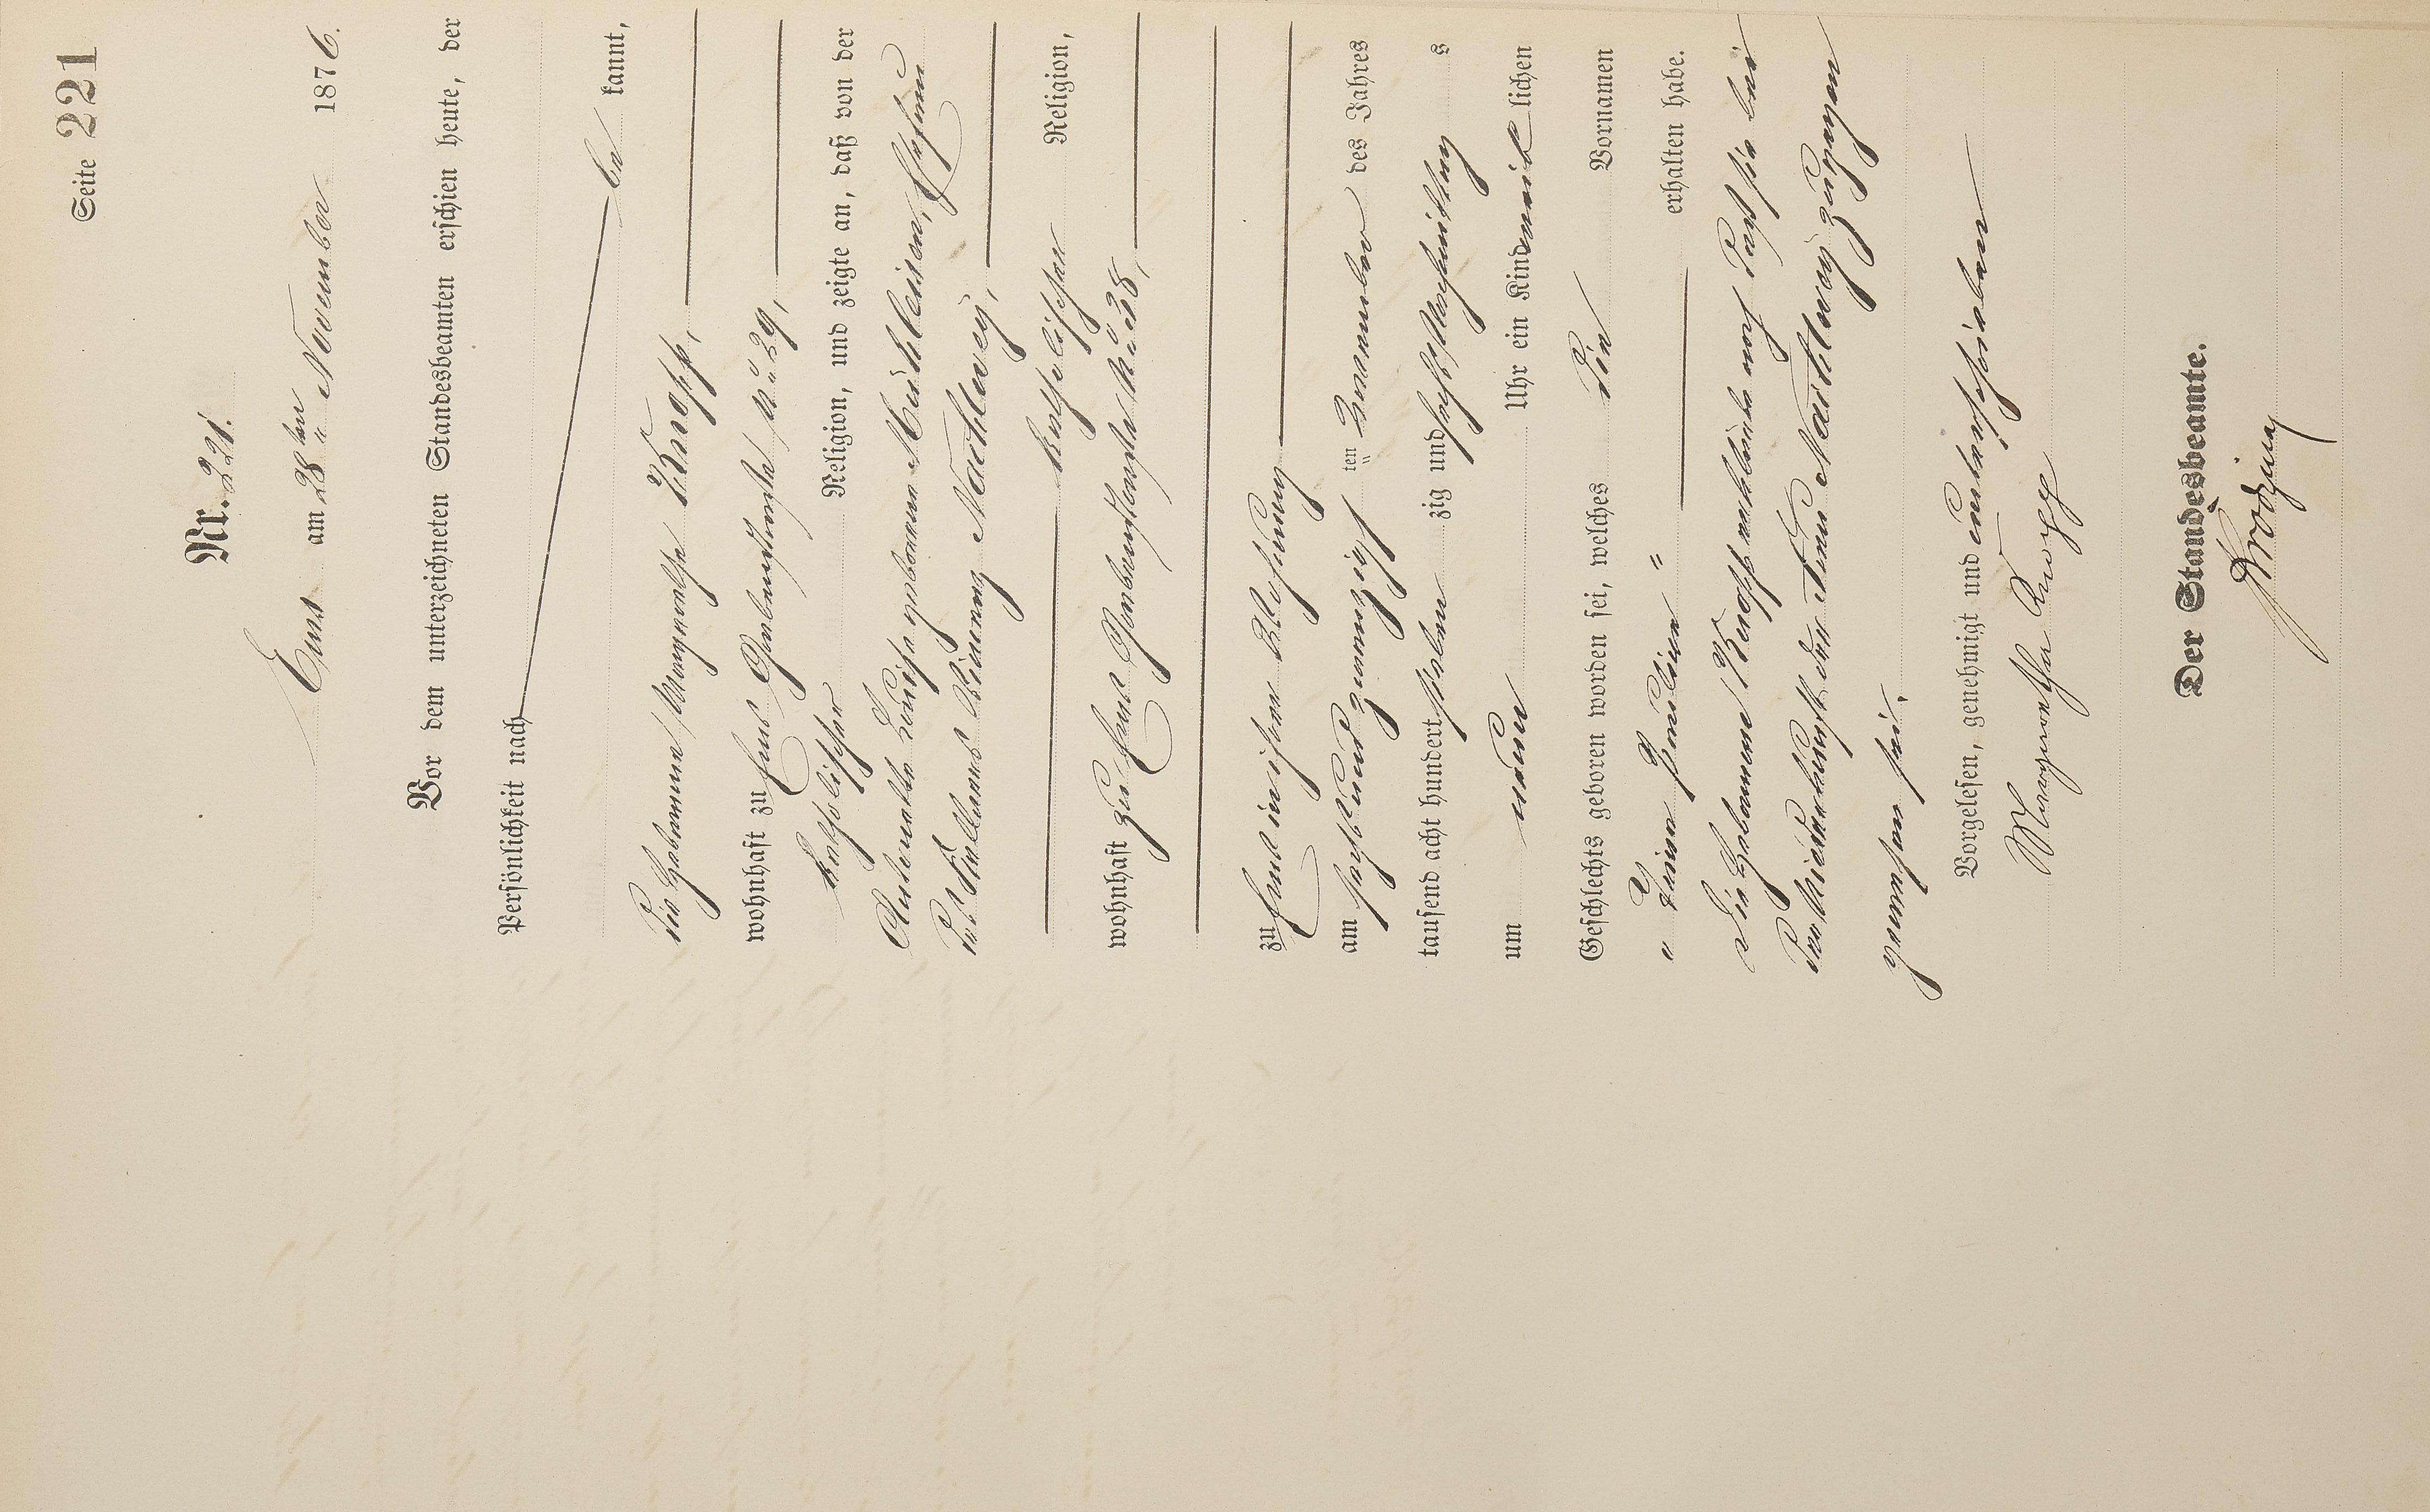 Seite 221
Nr. 221.
Ems am 28ten November 1876.
Vor dem unterzeichneten Standesbeamten erschien heute, der
Persönlichkeit nach
be kannt,
die Hebamme Margarethe Knopp,
wohnhaft zu Ems Grabenstraße No 29,
katholischer Religion, und zeigte an, daß von der
Louise geborenen Mühleisen, Ehefrau
des Nachtweij,
katholischer Religion,
wohnhaft zu Ems Grabenstraße No 38,
zu Ems in ihrer Wohnung
am sechsundzwanzigst ten November des Jahres
tausend acht hundert sieben zig und sechs Nachmittag s
um neun Uhr ein Kind weib lichen
Geschlechts geboren worden sei, welches die Vornamen
" Pauline " erhalten habe.
Die Hebamme Knopp erklärte noch daß sie bei
der Niederkunft der Frau Nachtweij zugegen
gewesen sei.
Vorgelesen, genehmigt und unterschrieben
Margarethe Knopp
Der Standesbeamte.